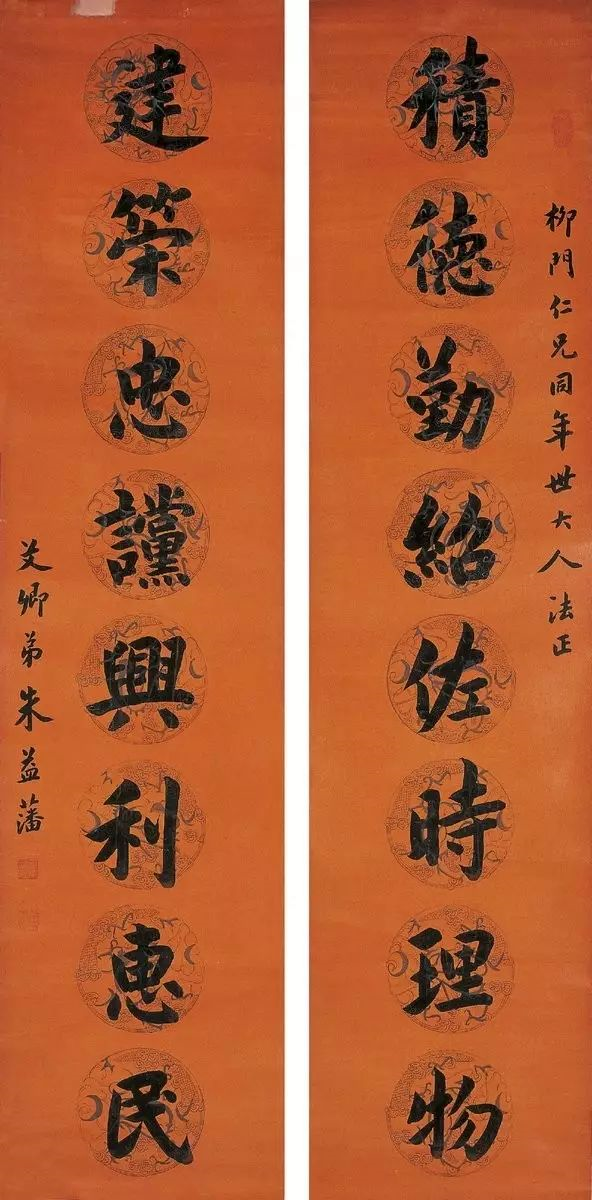 柳門仁兄同年世大人法正
積德勤紹佐時理物
建策忠讜興利惠民
艾卿弟朱益藩